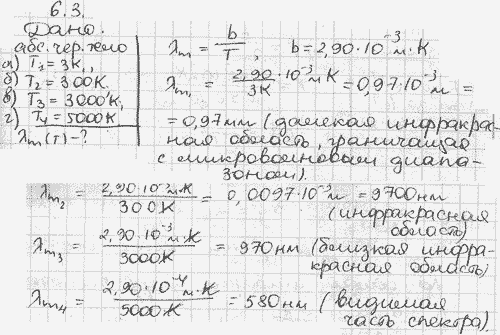 6.3.
Дано:
абс. чер. тело
а) T₁ = 3К,
б) T₂ = 300К
в) T₃ = 3000К,
г) T₄ = 5000К
λm(T) - ?
λm = b/T, b = 2,90·10⁻³ м·К
λm₁ = 2,90·10⁻³ м К / 3К = 0,97·10⁻³ м =
= 0,97 мм (далекая инфракрас-
ная область, граничащая
с микроволновым диапа-
зоном).
λm₂ = 2,90·10⁻³ м·К / 300К = 0,0097·10⁻³ м = 9700 нм
(инфракрасная
область)
λm₃ = 2,90·10⁻³ м·К / 3000К = 970 нм (близкая инфра-
красная область)
λm₄ = 2,90·10⁻⁴ м·К / 5000К = 580 нм (видимая
часть спектра)